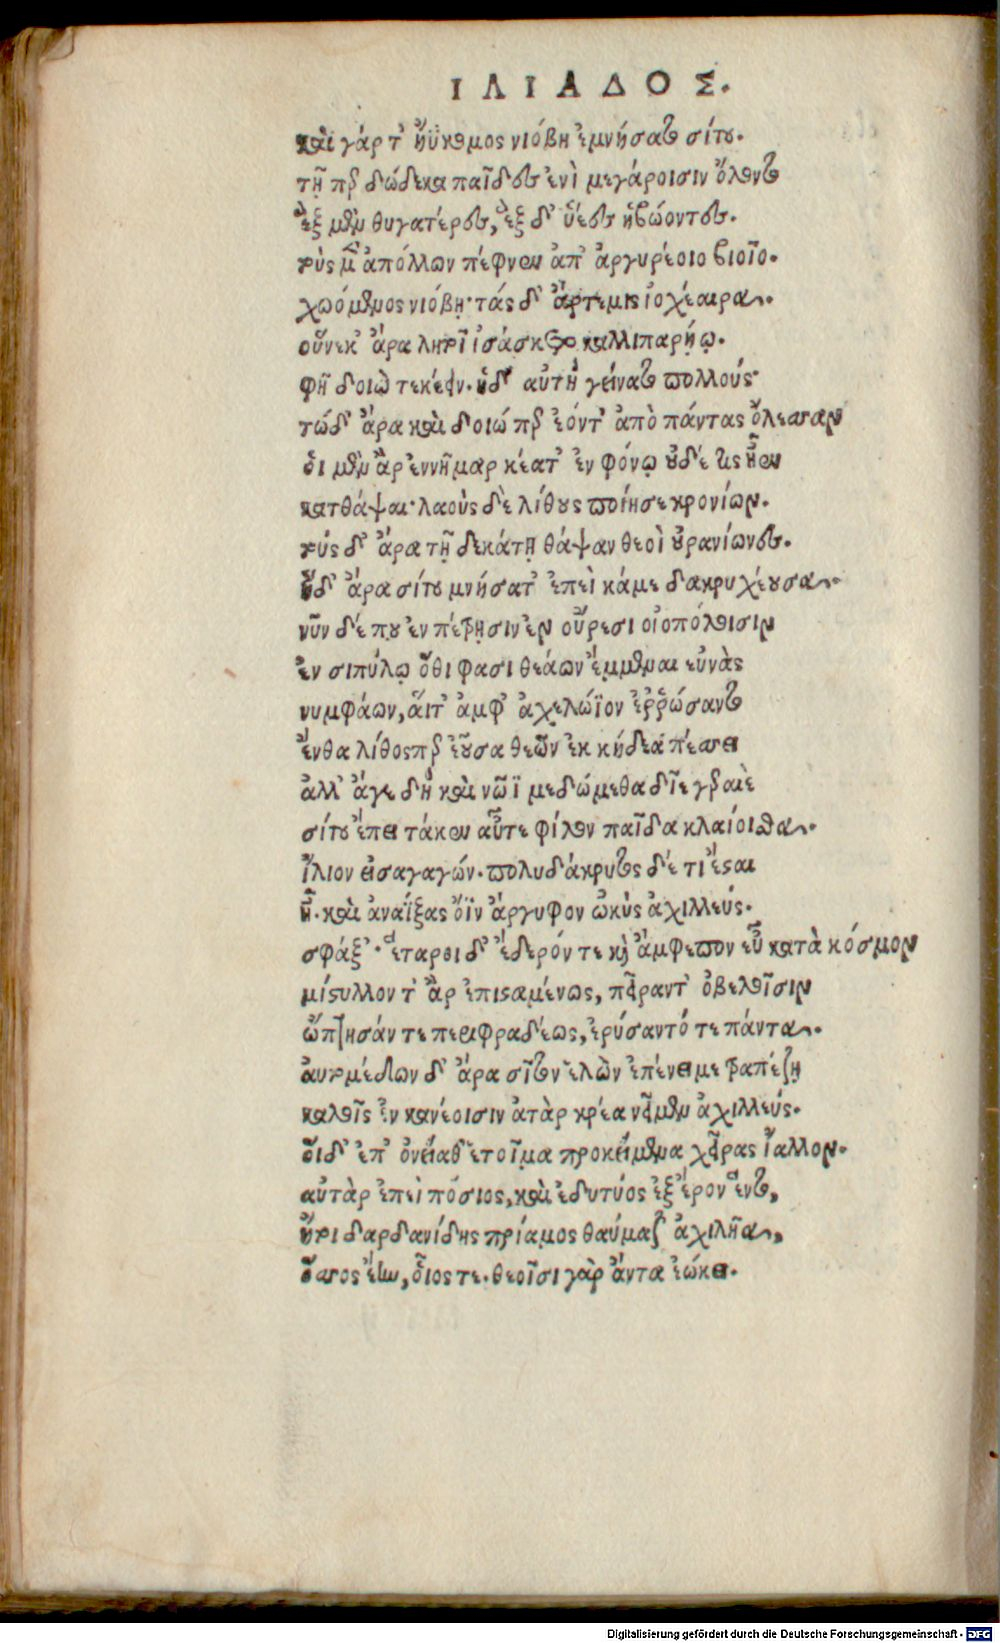 ΙΛΙΑΔΟΣ.
καὶ γάρ τ' ἠΰκομος νιόβη ἐμνήσατο σίτου.
τῇ περ δώδεκα παῖδες ἐνὶ μεγάροισιν ὄλοντο
ἓξ μὲν θυγατέρες, ἓξ δ' υἱέες ἡβώοντες.
τοὺς μὲν ἀπόλλων πέφνεν ἀπ' ἀργυρέοιο βιοῖο.
χωόμενος νιόβῃ· τὰς δ' ἄρτεμις ἰοχέαιρα.
οὕνεκ' ἄρα λητοῖ ἰσάσκετο καλλιπαρῄῳ.
φῆ δοιὼ τεκέειν. ἠδ' αὐτὴ γείνατο πολλούς·
τώδ' ἄρα καὶ δοιώ περ ἐόντ' ἀπὸ πάντας ὄλεσσαν
οἱ μὲν ἂρ ἐννῆμαρ κέατ' ἐν φόνῳ οὐδέ τις ἦεν
κατθάψαι· λαοὺς δὲ λίθους ποίησε κρονίων.
τοὺς δ' ἄρα τῇ δεκάτῃ θάψαν θεοὶ οὐρανίωνες.
ἡ δ' ἄρα σίτου μνήσατ' ἐπεὶ κάμε δακρυχέουσα.
νῦν δέ που ἐν πέτρῃσιν ἐν οὔρεσι οἰοπόλοισιν
ἐν σιπύλῳ ὅθι φασὶ θεάων ἔμμεναι εὐνὰς
νυμφάων, αἵτ' ἀμφ' ἀχελώϊον ἐῤῥώσαντο
ἔνθα λίθος περ ἐοῦσα θεῶν ἐκ κήδεα πέσσει
ἀλλ' ἄγε δὴ καὶ νῶϊ μεδώμεθα δῖε γεραιὲ
σίτου ἔπειτά κεν αὖτε φίλον παῖδα κλαίοισθα.
ἴλιον εἰσαγαγών. πολυδάκρυτος δέ τι ἔσται
ἦ. καὶ ἀναΐξας ὄϊν ἄργυφον ὠκὺς ἀχιλλεύς.
σφάξ'· ἕταροι δ' ἔδερόν τε καὶ ἄμφεπον εὖ κατὰ κόσμον
μίστυλλον τ' ἂρ ἐπισταμένως, πεῖραντ' ὀβελοῖσιν
ὤπτησάν τε περιφραδέως, ἐρύσαντό τε πάντα.
αὐτομέδων δ' ἄρα σῖτον ἑλὼν ἐπένειμε τραπέζῃ
καλοῖς ἐν κανέοισιν ἀτὰρ κρέα νεῖμεν ἀχιλλεύς.
οἱ δ' ἐπ' ὀνείαθ' ἑτοῖμα προκείμενα χεῖρας ἴαλλον.
αὐτὰρ ἐπεὶ πόσιος, καὶ ἐδητύος ἐξ ἔρον ἕντο,
ἤτοι δαρδανίδης πρίαμος θαύμαζ' ἀχιλῆα,
ὅσσος ἔην, οἷός τε. θεοῖσι γὰρ ἄντα ἐώκει.
Digitalisierung gefördert durch die Deutsche Forschungsgemeinschaft - DFG